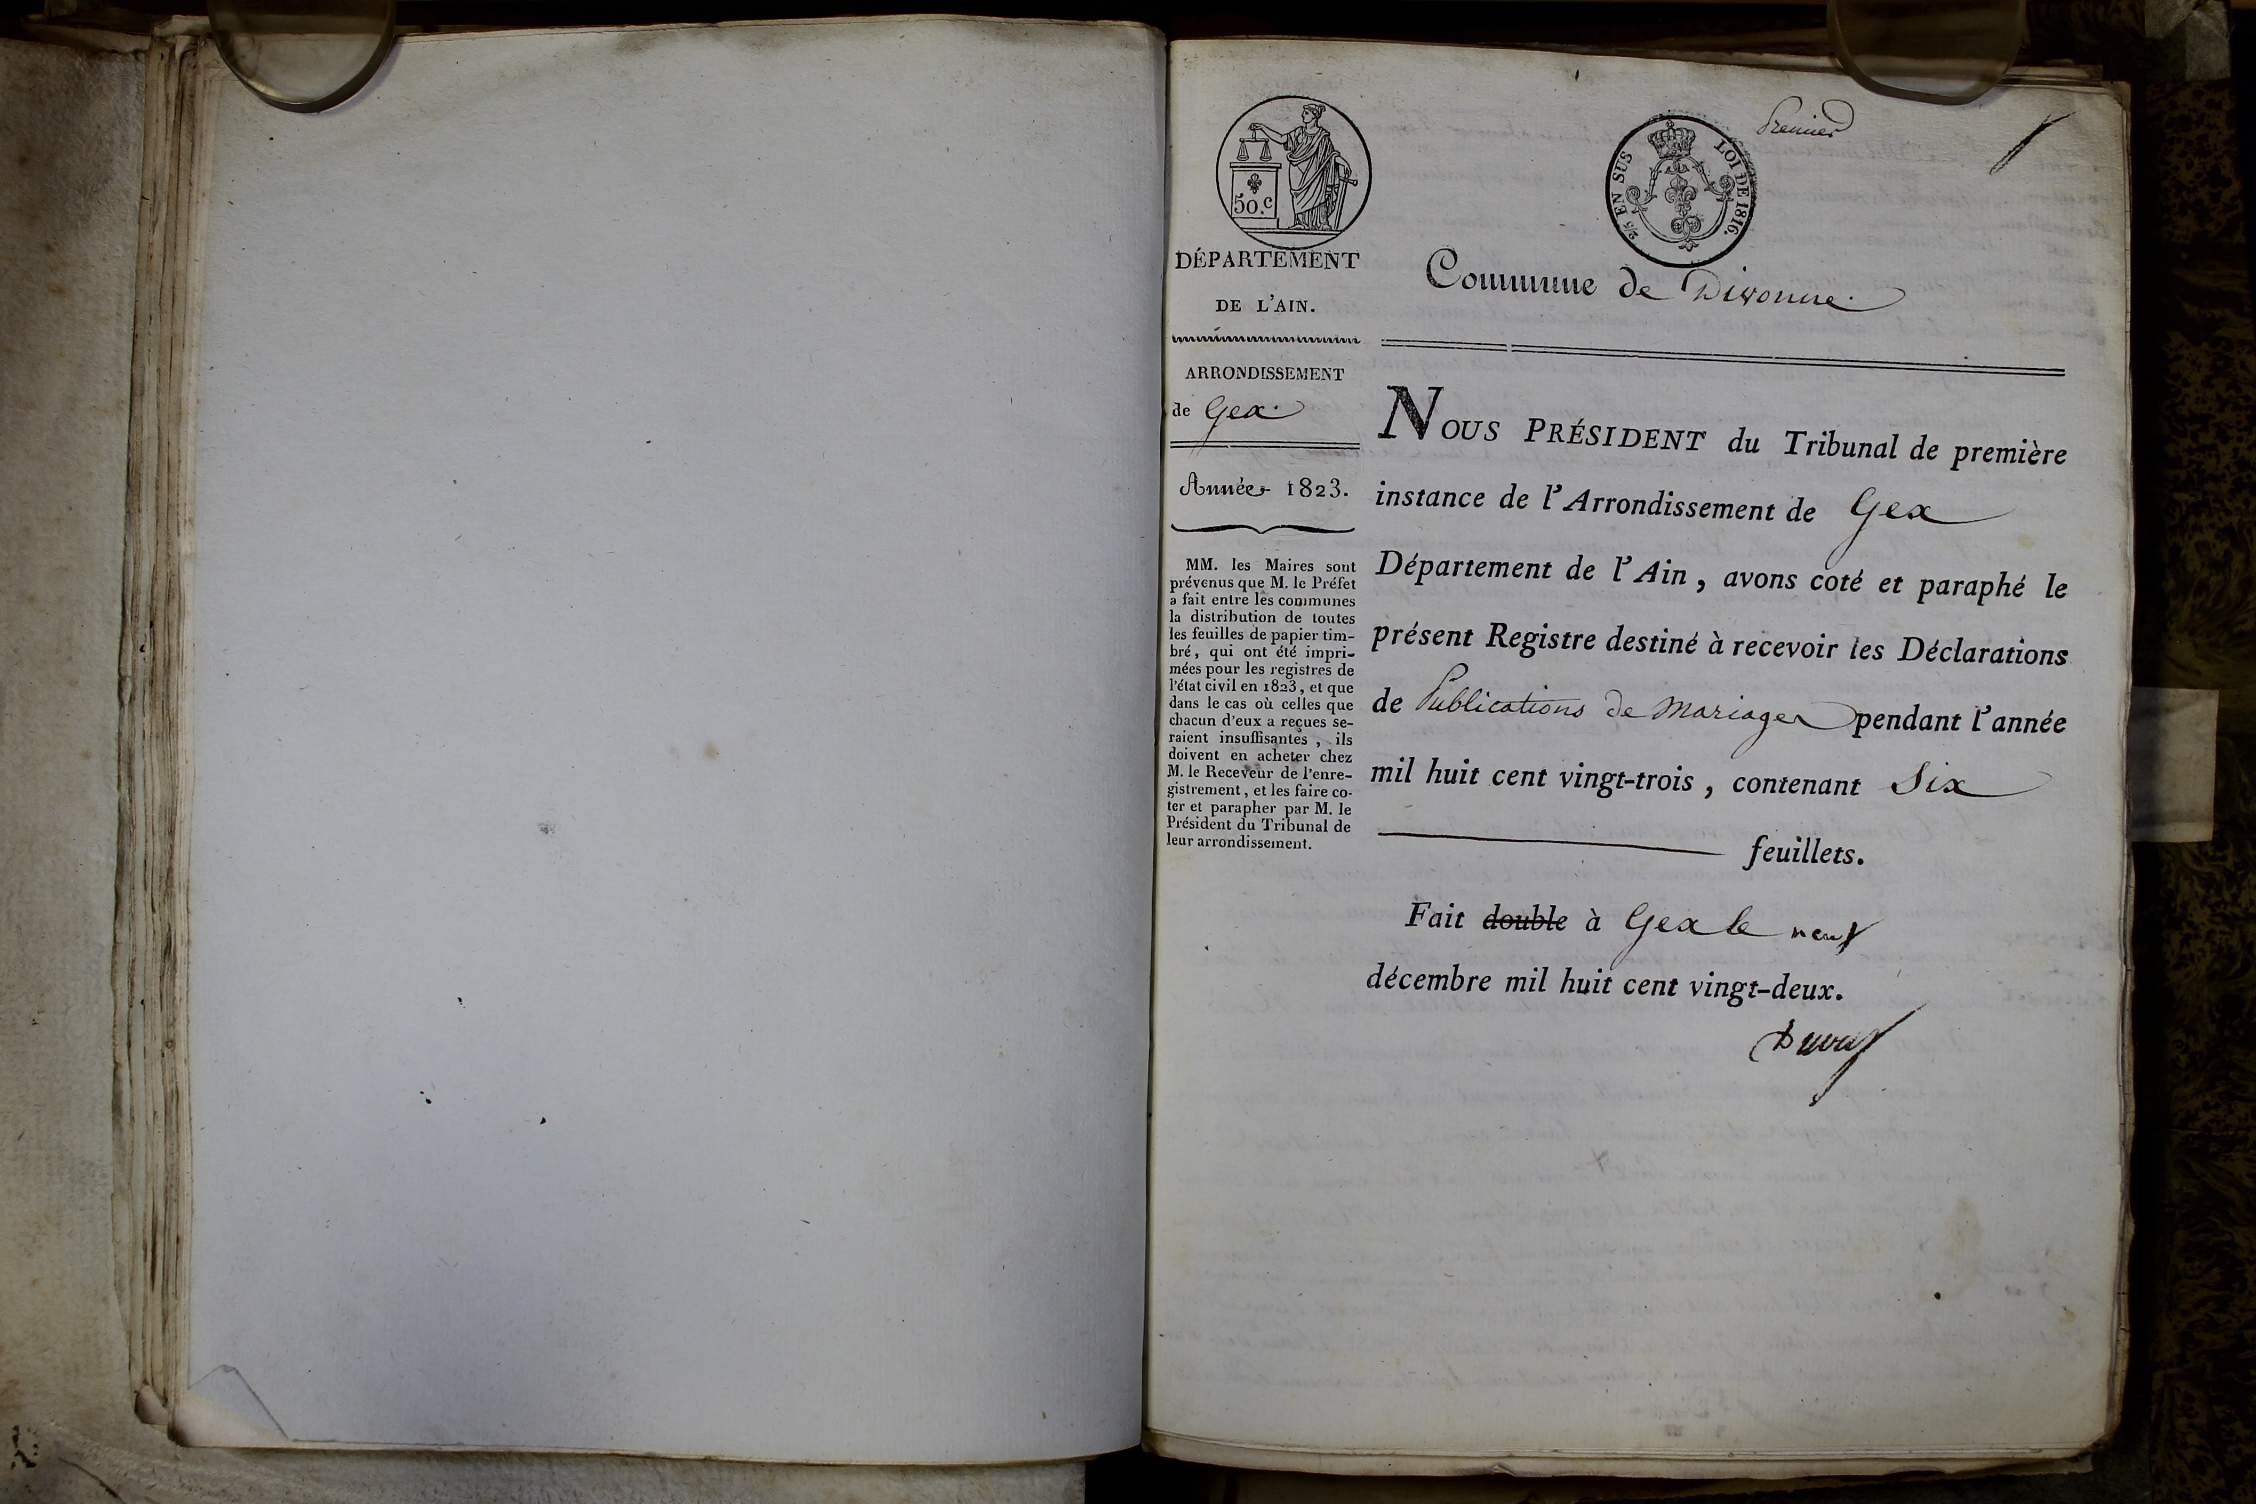 Premier
50.c
2/5 EN SUS LOI DE 1816.
DÉPARTEMENT
DE L'AIN.
ARRONDISSEMENT
de Gex.
Année 1823.
MM. les Maires sont
prévenus que M. le Préfet
a fait entre les communes
la distribution de toutes
les feuilles de papier tim-
bré, qui ont été impri-
mées pour les registres de
l'état civil en 1823, et que
dans le cas où celles que
chacun d'eux a reçues se-
raient insuffisantes, ils
doivent en acheter chez
M. le Receveur de l'enre-
gistrement, et les faire co-
ter et parapher par M. le
Président du Tribunal de
leur arrondissement.
Commune de Divonne.
NOUS PRÉSIDENT du Tribunal de première
instance de l'Arrondissement de Gex
Département de l'Ain, avons coté et paraphé le
présent Registre destiné à recevoir les Déclarations
de Publications de Mariages pendant l'année
mil huit cent vingt-trois, contenant Six
feuillets.
Fait double à Gex le neuf
décembre mil huit cent vingt-deux.